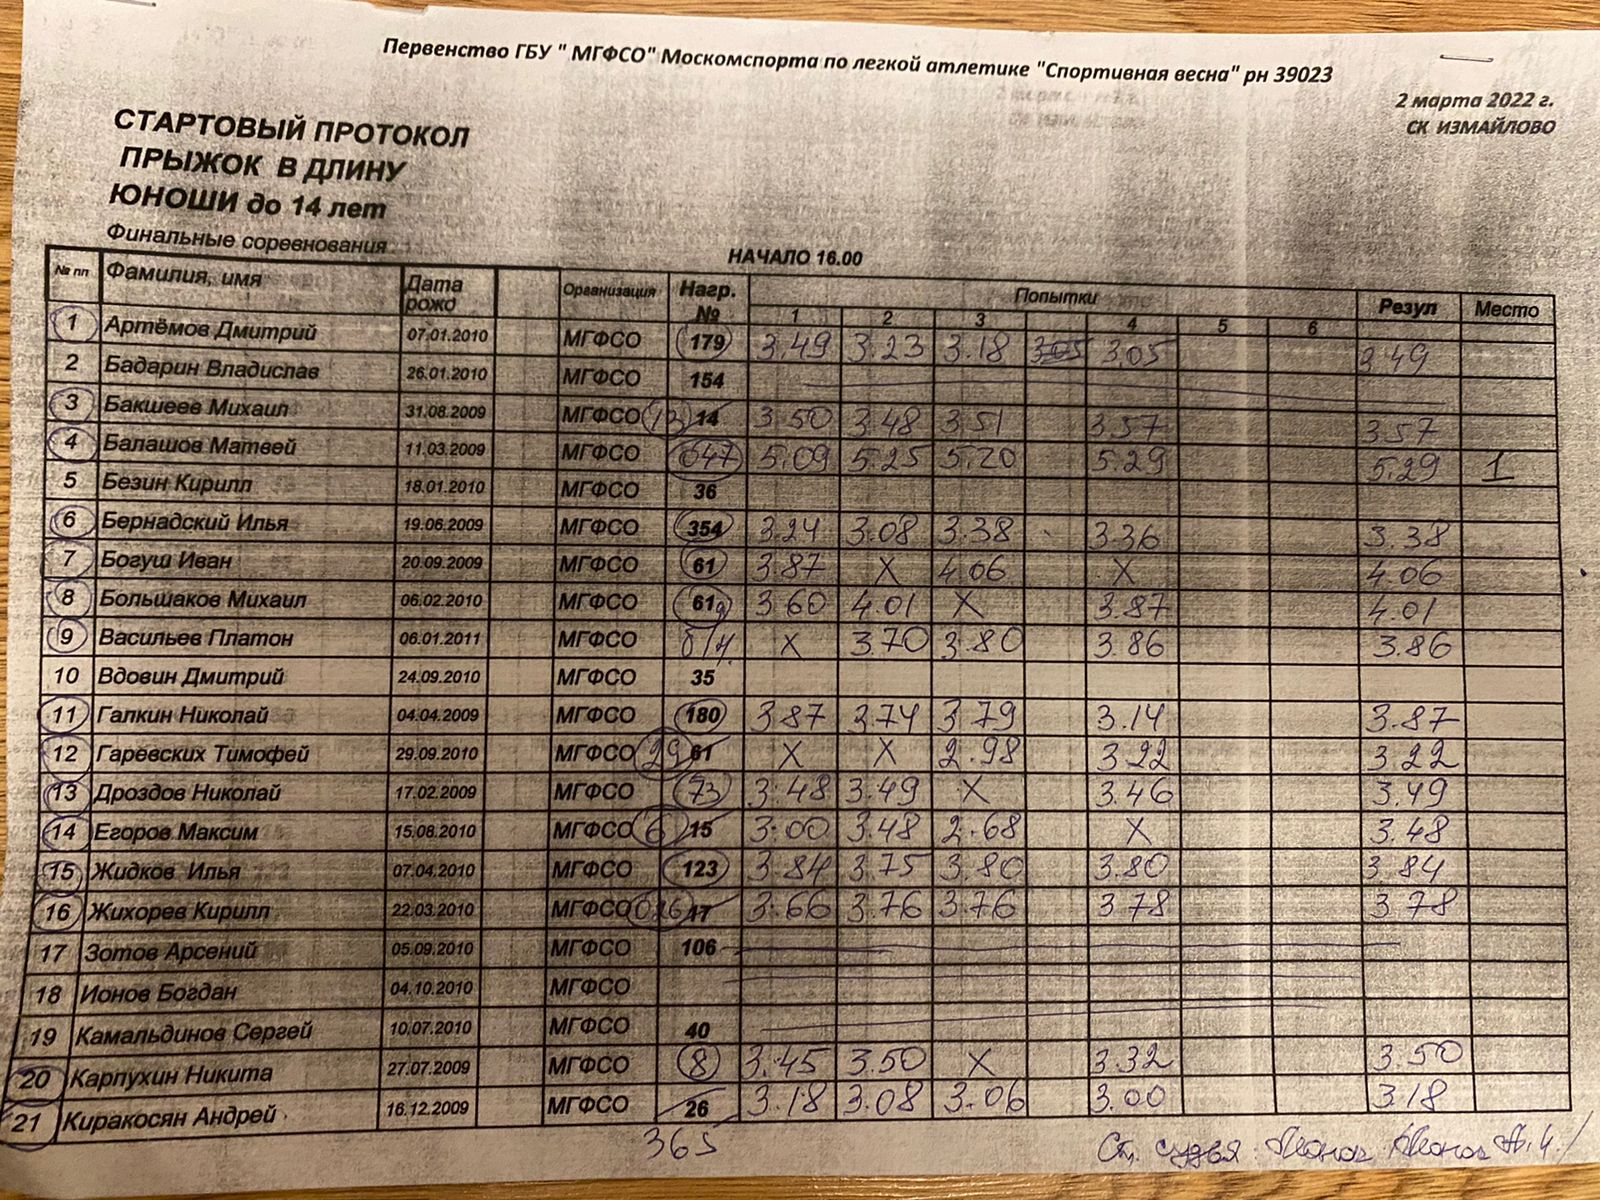 Первенство ГБУ " МГФСО" Москомспорта по легкой атлетике "Спортивная весна" рн 39023
2 марта 2022 г.
СК ИЗМАЙЛОВО
СТАРТОВЫЙ ПРОТОКОЛ
ПРЫЖОК В ДЛИНУ
ЮНОШИ до 14 лет
Финальные соревнования
НАЧАЛО 16.00
№ пп Фамилия, имя Дата рожд Организация Нагр. № Попытки Резул Место
1 2 3 4 5 6
1 Артёмов Дмитрий 07.01.2010 МГФСО 179 3.49 3.23 3.18 3.05 3.05 3.49
2 Бадарин Владислав 26.01.2010 МГФСО 154
3 Бакшеев Михаил 31.08.2009 МГФСО 13 14 3.50 3.48 3.51 3.57 3.57
4 Балашов Матвей 11.03.2009 МГФСО 647 5.09 5.25 5.20 5.29 5.29 1
5 Безин Кирилл 18.01.2010 МГФСО 36
6 Бернадский Илья 19.06.2009 МГФСО 354 3.24 3.08 3.38 3.36 3.38
7 Богуш Иван 20.09.2009 МГФСО 61 3.87 X 4.06 X 4.06
8 Большаков Михаил 06.02.2010 МГФСО 61д 3.60 4.01 X 3.87 4.01
9 Васильев Платон 06.01.2011 МГФСО б/н. X 3.70 3.80 3.86 3.86
10 Вдовин Дмитрий 24.09.2010 МГФСО 35
11 Галкин Николай 04.04.2009 МГФСО 180 3.87 3.74 3.79 3.14 3.87
12 Гаревских Тимофей 29.09.2010 МГФСО 29 61 X X 2.98 3.22 3.22
13 Дроздов Николай 17.02.2009 МГФСО 73 3.48 3.49 X 3.46 3.49
14 Егоров Максим 15.08.2010 МГФСО 6 15 3.00 3.48 2.68 X 3.48
15 Жидков Илья 07.04.2010 МГФСО 123 3.84 3.75 3.80 3.80 3.84
16 Жихорев Кирилл 22.03.2010 МГФСО 026 17 3.66 3.76 3.76 3.78 3.78
17 Зотов Арсений 05.09.2010 МГФСО 106
18 Ионов Богдан 04.10.2010 МГФСО
19 Камальдинов Сергей 10.07.2010 МГФСО 40
20 Карпухин Никита 27.07.2009 МГФСО 8 3.45 3.50 X 3.32 3.50
21 Киракосян Андрей 16.12.2009 МГФСО 26 3.18 3.08 3.06 3.00 3.18
365
Ст. судья